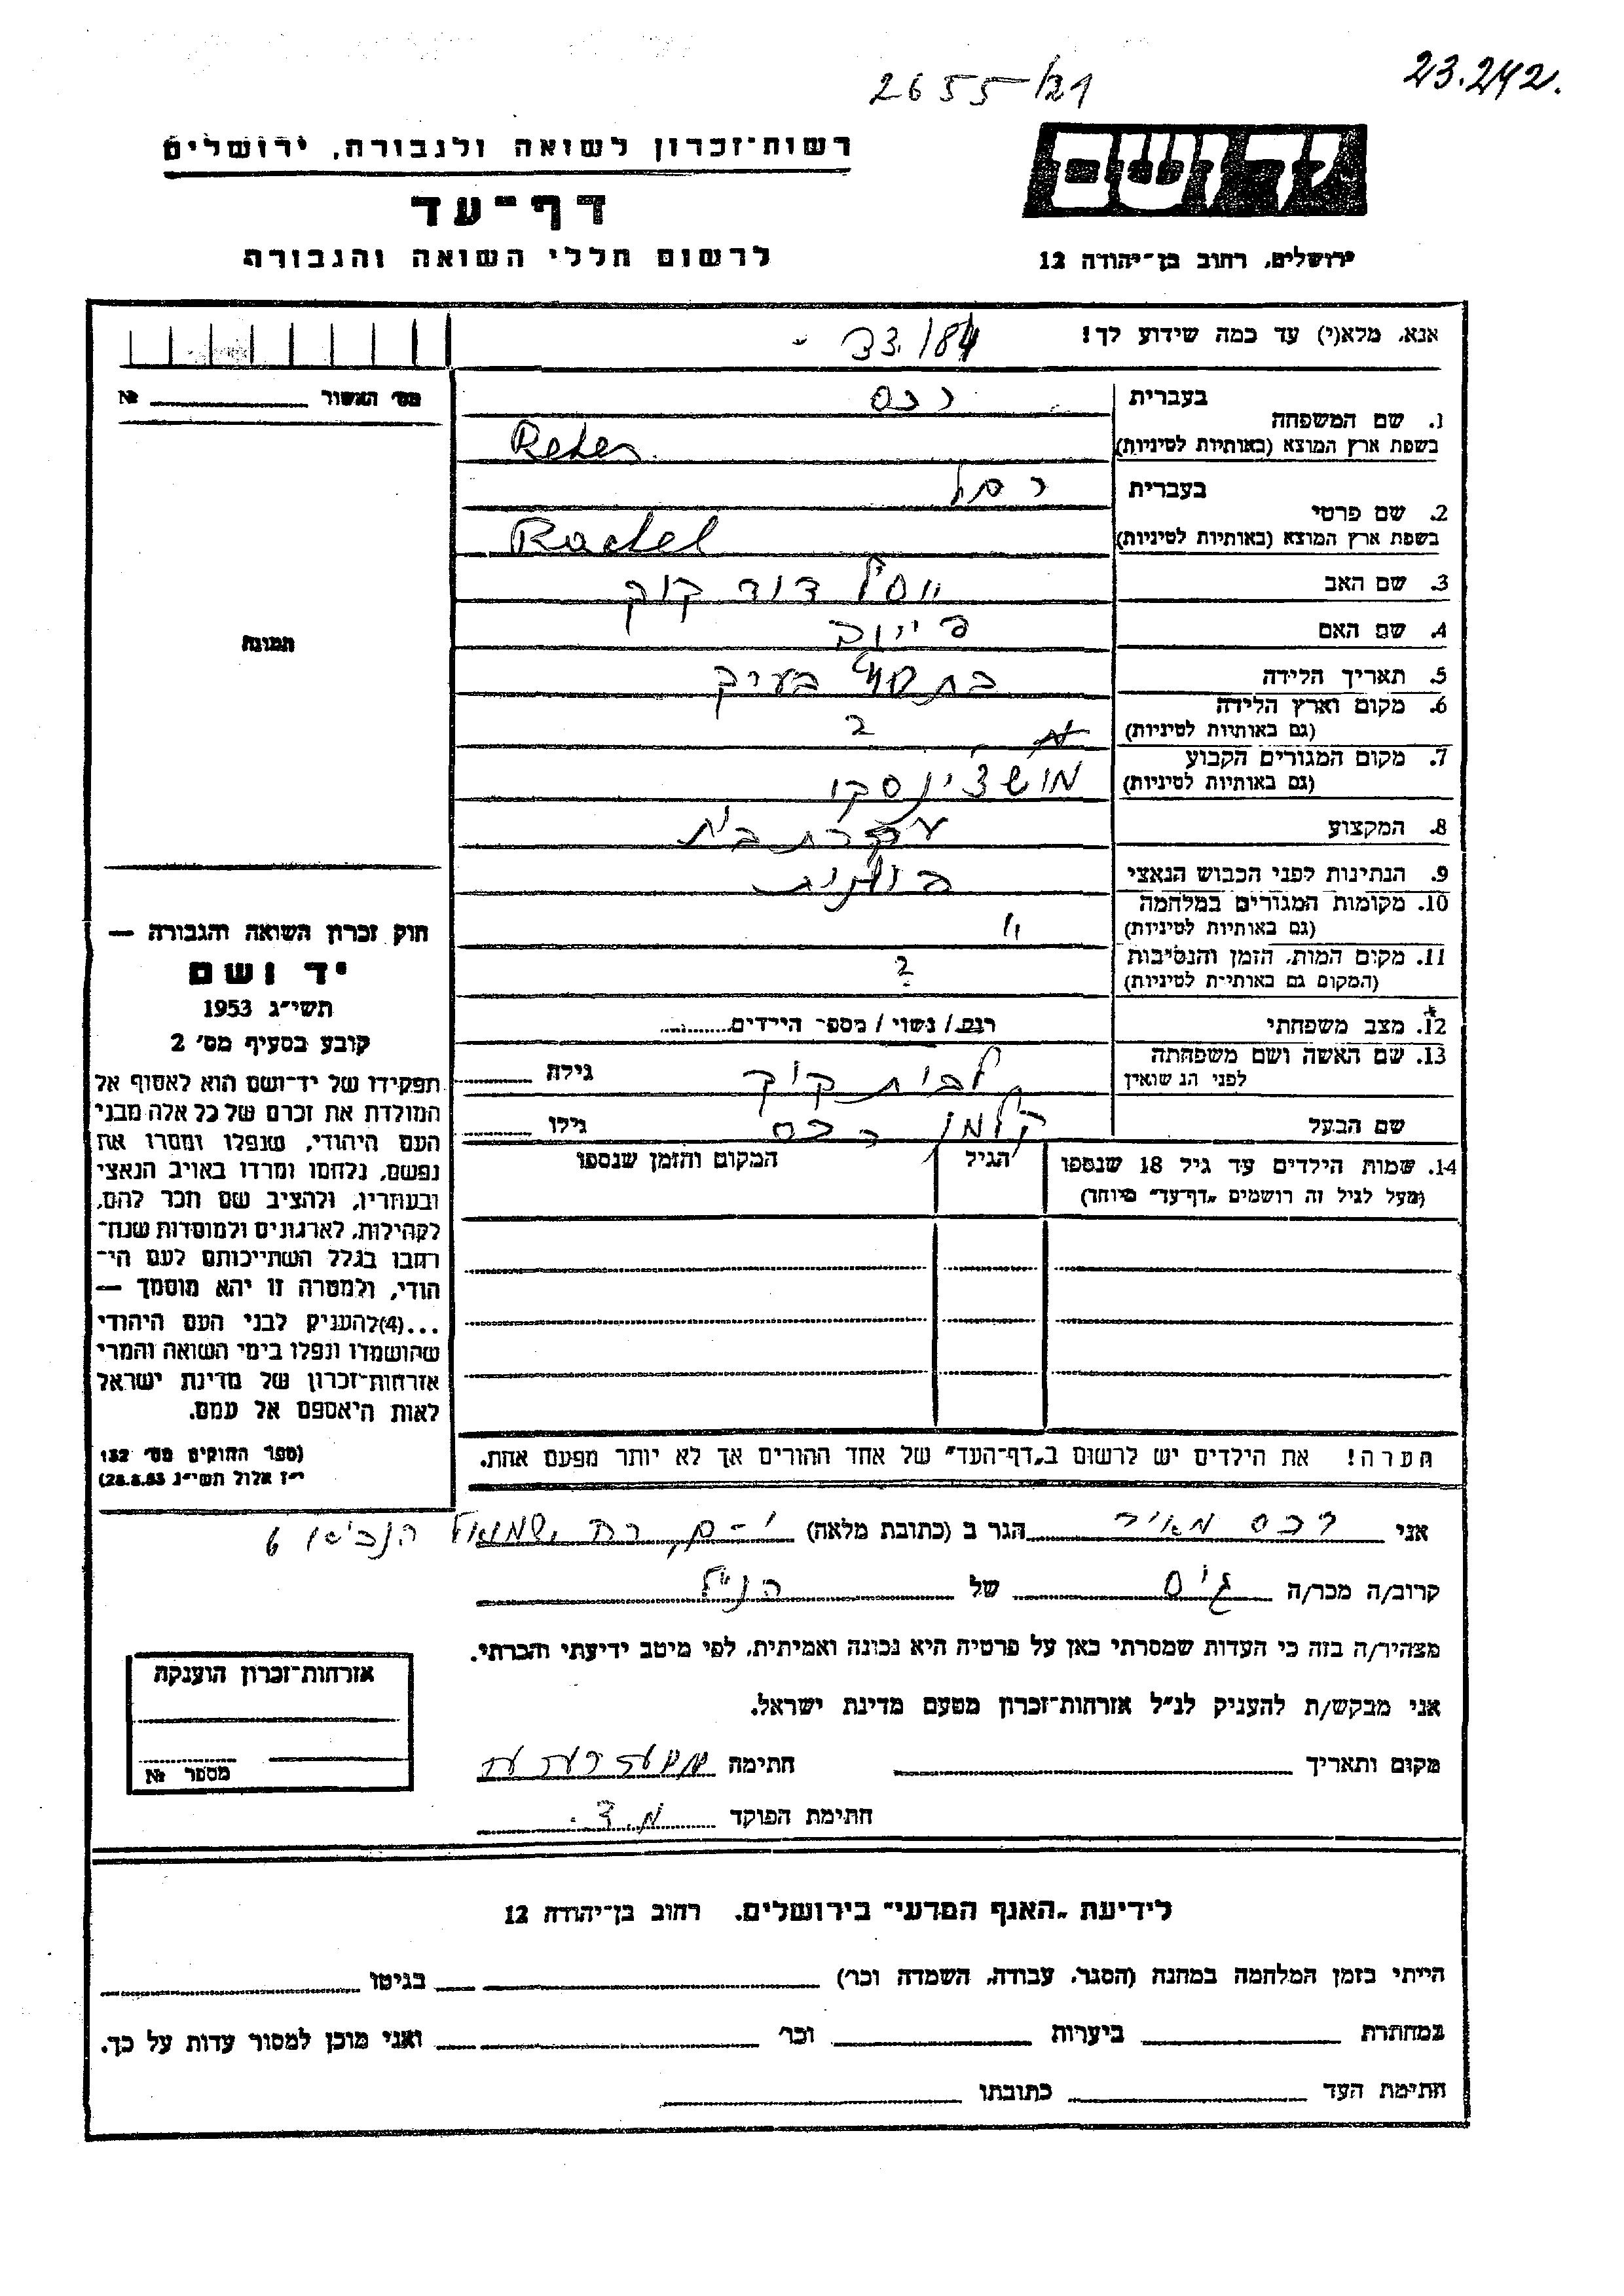 2655/21
23.242.
יד ושם
ירושלים, רחוב בן־יהודה 12
רשות־זכרון לשואה ולגבורה, ירושלים
דף־עד
לרשום חללי השואה והגבורה
אנא, מלא(י) עד כמה שידוע לך!
33/84
מס' האשור №
1. שם המשפחה
בעברית רכס
בשפת ארץ המוצא (באותיות לטיניות)
2. שם פרטי
בעברית רחל
בשפת ארץ המוצא (באותיות לטיניות) Rachel
3. שם האב דוד קוק
4. שם האם
5. תאריך הלידה
6. מקום וארץ הלידה
(גם באותיות לטיניות) ?
7. מקום המגורים הקבוע
(גם באותיות לטיניות)
8. המקצוע עקרת בית
9. הנתינות לפני הכבוש הנאצי פולנית
10. מקומות המגורים במלחמה
(גם באותיות לטיניות) "
11. מקום המות, הזמן והנסיבות
(המקום גם באותיות לטיניות) ?
12. מצב משפחתי רוק/נשוי/מספר הילדים
13. שם האשה ושם משפחתה
לפני הנשואין לבית קוק גילה
שם הבעל קלמן רכס גילו
14. שמות הילדים עד גיל 18 שנספו
(מעל לגיל זה רושמים „דף־עד" מיוחד)
הגיל
המקום והזמן שנספו
הערה! את הילדים יש לרשום ב„דף־העד" של אחד ההורים אך לא יותר מפעם אחת.
תמונה
חוק זכרון השואה והגבורה —
יד ושם
תשי"ג 1953
קובע בסעיף מס' 2
תפקידו של יד־ושם הוא לאסוף אל
המולדת את זכרם של כל אלה מבני
העם היהודי, שנפלו ומסרו את
נפשם, נלחמו ומרדו באויב הנאצי
ובעוזריו, ולהציב שם וזכר להם,
לקהילות, לארגונים ולמוסדות שנח־
רבו בגלל השתייכותם לעם הי־
הודי, ולמטרה זו יהא מוסמך —
...(4)להעניק לבני העם היהודי
שהושמדו ונפלו בימי השואה והמרי
אזרחות־זכרון של מדינת ישראל
לאות היאספם אל עמם.
(ספר החוקים מס' 132
י"ז אלול תשי"ג 28.8.53)
אני רכס מאיר הגר ב (כתובת מלאה) י-ם, רח שמואל הנביא 6
קרוב/ה מכר/ה גיס של הנ"ל
מצהיר/ה בזה כי העדות שמסרתי כאן על פרטיה היא נכונה ואמיתית, לפי מיטב ידיעתי והכרתי.
אני מבקש/ת להעניק לנ"ל אזרחות־זכרון מטעם מדינת ישראל.
מקום ותאריך חתימה
חתימת הפוקד
אזרחות־זכרון הוענקה
מספר №
לידיעת „האגף המדעי" בירושלים, רחוב בן־יהודה 12
הייתי בזמן המלחמה במחנה (הסגר, עבודה, השמדה וכו') בגיטו
במחתרת ביערות וכו' ואני מוכן למסור עדות על כך.
חתימת העד כתובתו